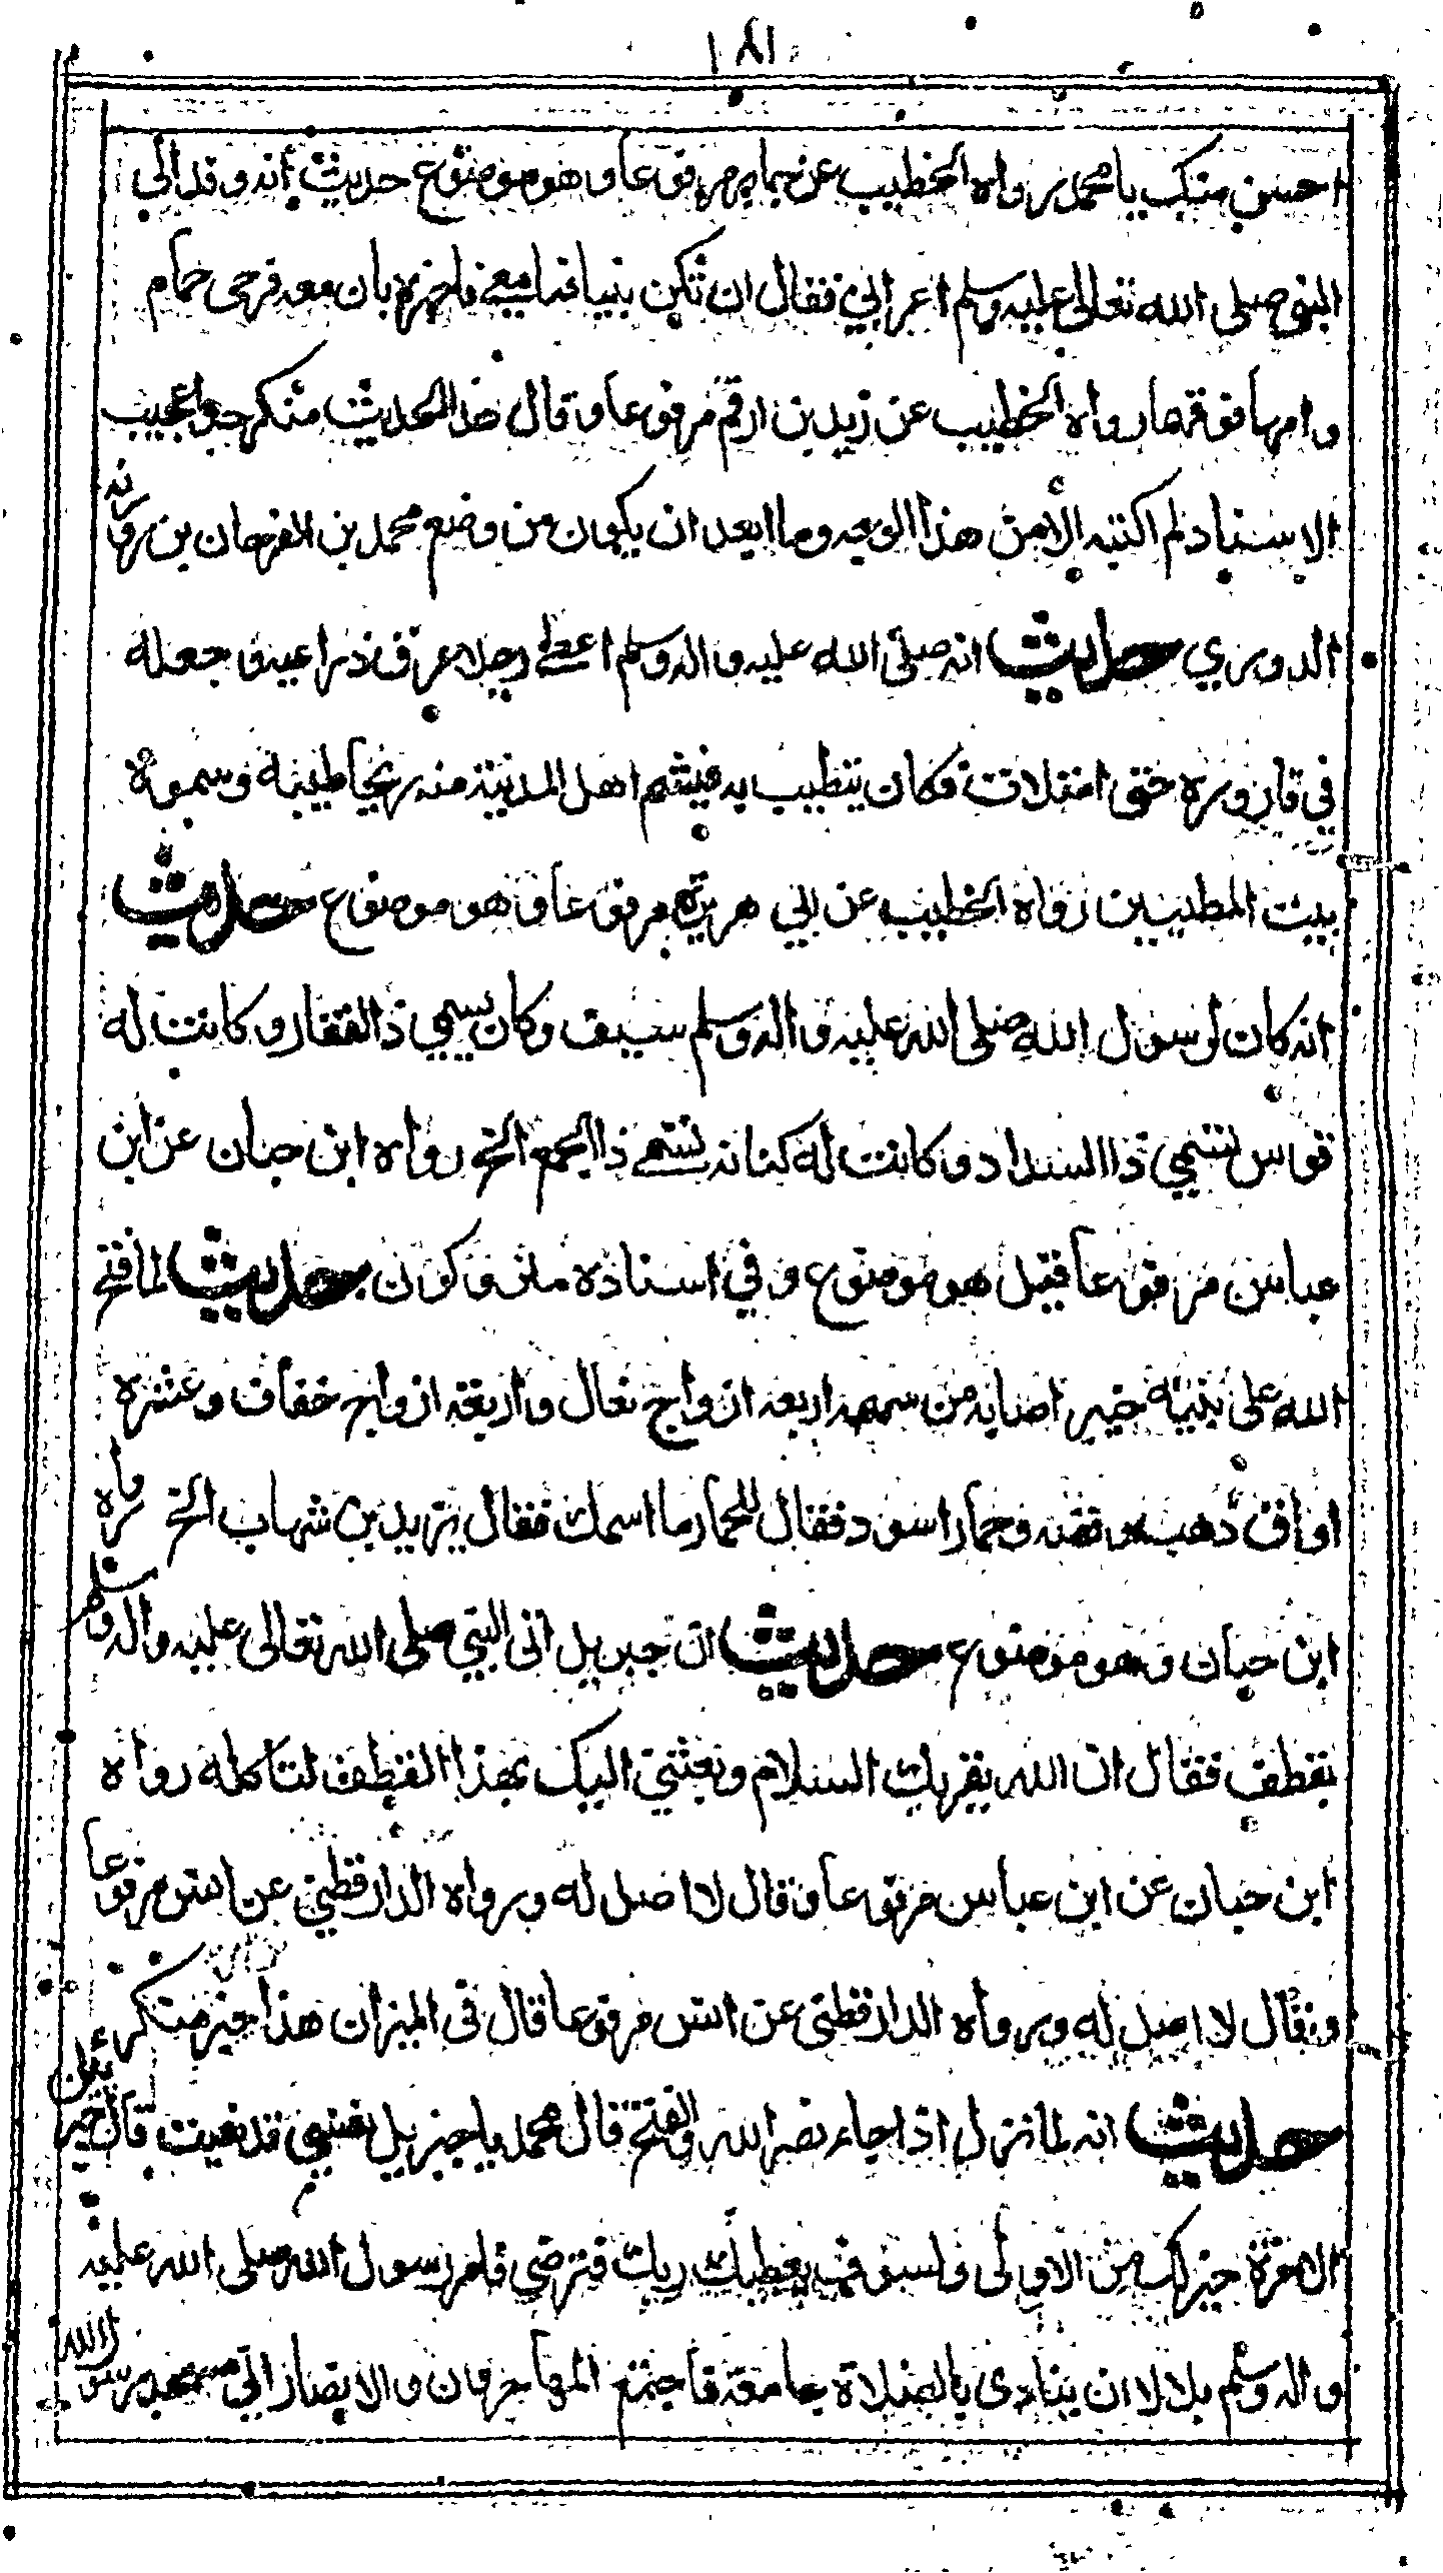 ١٨١
احسن منك يا محمد رواه الخطيب عن جابر مرفوعا وهو موضوع حديث انه وفد الى
النبي صلى الله تعالى عليه وسلم اعرابي فقال ان تكن نبيا فما معي فاخبره بان معه فرخي حمام
وامهما فوقهما رواه الخطيب عن زيد بن ارقم مرفوعا وقال هذا الحديث منكر جدا عجيب
الاسناد لم اكتبه الا من هذا الوجه وما ابعد ان يكون من وضع محمد بن الفرحان بن روزبه
الدوري حديث انه صلى الله عليه واله وسلم اعطى رجلا عرق ذراعيه وجعله
في قارورة حتى امتلات فكان يتطيب به فيشم اهل المدينة منه ريحا طيبة وسموه
بيت المطيبين رواه الخطيب عن ابي هريرة مرفوعا وهو موضوع حديث
انه كان لرسول الله صلى الله عليه واله وسلم سيف وكان يسمي ذا الفقار وكانت له
قوس تسمي ذا السداد وكانت له كنانة تسمى ذا الجمع الخ رواه ابن حبان عن ابن
عباس مرفوعا قيل هو موضوع وفي اسناده متروكون حديث لما فتح
الله على نبيه خيبر اصابه من سهمه اربعة ازواج نعال واربعة ازواج خفاف وعشرة
اواق ذهب وفضة وحمار اسود فقال للحمار ما اسمك فقال يزيد بن شهاب الخ رواه
ابن حبان وهو موضوع حديث ان جبريل اتى النبي صلى الله تعالى عليه واله وسلم
بقطف فقال ان الله يقريك السلام وبعثني اليك بهذا القطف لتاكله رواه
ابن حبان عن ابن عباس مرفوعا وقال لا اصل له ورواه الدارقطني عن انس مرفوعا
وقال لا اصل له ورواه الدارقطني عن انس مرفوعا قال في الميزان هذا خبر منكر
حديث انه لما نزل اذا جاء نصر الله والفتح قال محمد يا جبريل نفسي قد نعيت قال جبرئيل
الاخرة خير لك من الاولى ولسوف يعطيك ربك فترضى فامر رسول الله صلى الله عليه
واله وسلم بلالا ان ينادى بالصلاة جامعة فاجتمع المهاجرون والانصار الى مسجد رسول الله